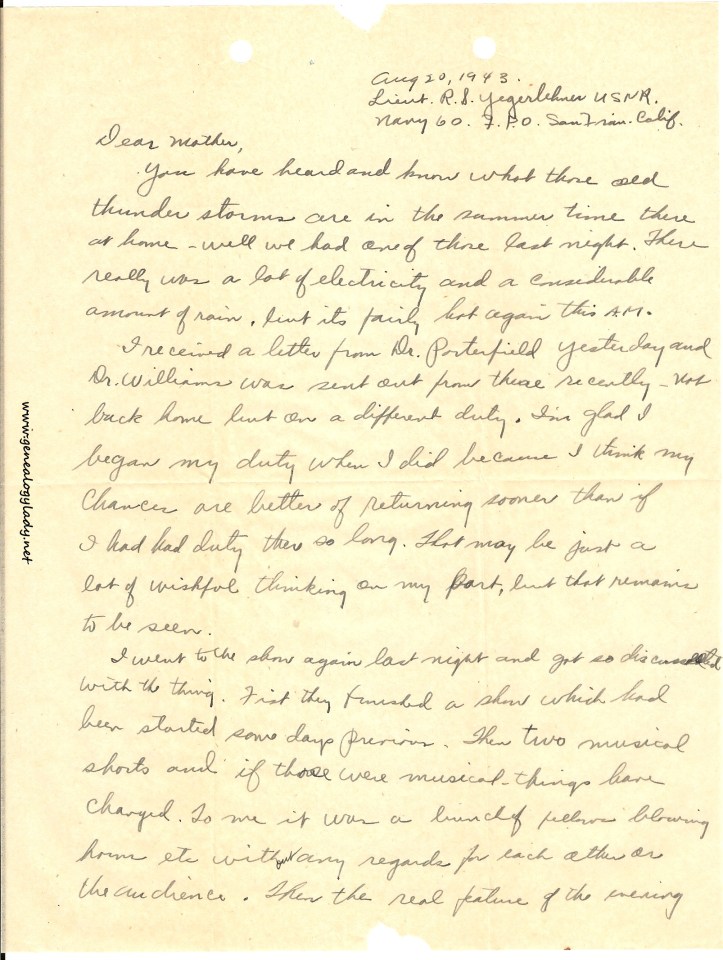 Aug 20, 1943.
Lieut. R.S. Yegerlehner USNR.
Navy 60. F.P.O. San Fran. Calif.
Dear Mother,
You have heard and know what those old
thunder storms are in the summer time there
at home - well we had one of those last night. There
really was a lot of electricity and a considerable
amount of rain, but its fairly hot again this A.M.
I received a letter from Dr. Porterfield yesterday and
Dr. Williams was sent out from there recently - not
back home but on a different duty. I'm glad I
began my duty when I did because I think my
chances are better of returning sooner than if
I had had duty there so long. That may be just a
lot of wishful thinking on my part, but that remains
to be seen.
I went to the show again last night and got so
with the thing. Fist they finished a show which had
been started some days previous. Then two musical
shorts and if those were musical - things have
changed. To me it was a bunch of fellows blowing
horns etc without any regards for each other or
the audience. Then the real feature of the evening
www.genealogylady.net